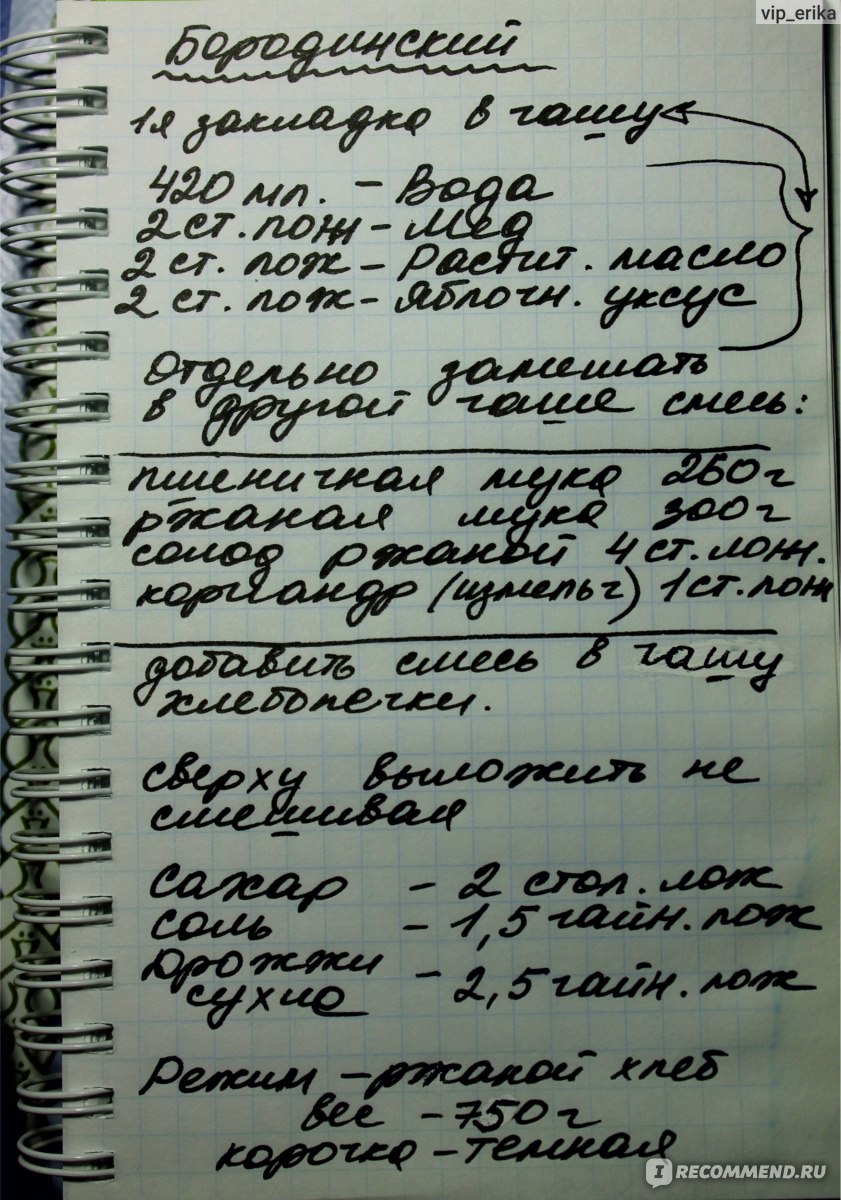 vip_erika
Бородинский
1я закладка в чашу
420 мл. - Вода
2 ст. лож - Мёд
2 ст. лож - Растит. масло
2 ст. лож - Яблочн. уксус
Отдельно замешать
в другой чаше смесь:
пшеничная мука 260г
ржаная мука 300г
солод ржаной 4 ст. лож.
кориандр (измельч) 1 ст. лож
добавить смесь в чашу
хлебопечки.
сверху выложить не
смешивая
Сахар - 2 стол. лож
Соль - 1,5 чайн. лож
Дрожжи
сухие - 2,5 чайн. лож
Режим - ржаной хлеб
вес - 750г
корочка - темная
IRECOMMEND.RU